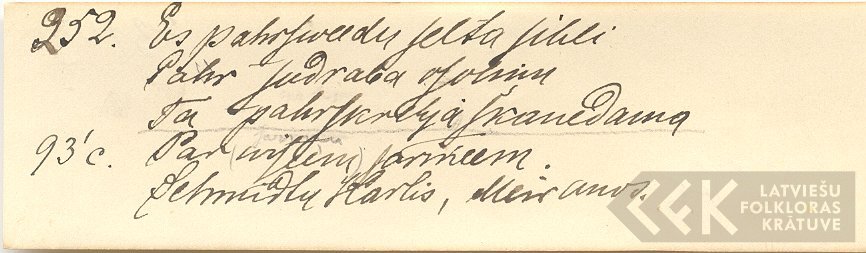 252. Es pahrsweedu selta sihli
Pahr sudraba osolinu
Ta pahrskrehja skanedama
93'c. Par (wiseem) sarineem.
Schmidtu Karlis, Meiranos.
LATVIEŠU
FOLKLORAS
KRĀTUVE